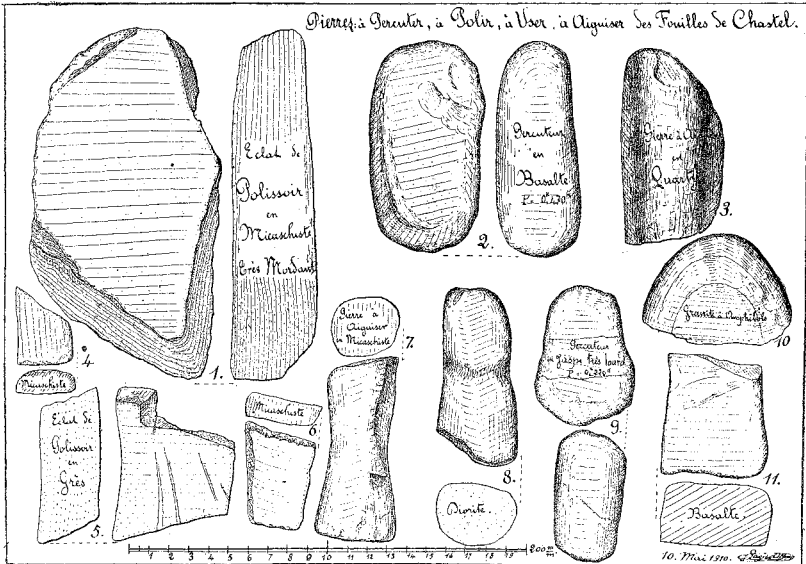 Pierres à Percuter, à Polir, à User, à Aiguiser des Fouilles de Chastel.
Eclat de
Polissoir
en
Micaschiste
très Mordant
1.
Percuteur
en
Basalte
2.
Pierre à
en
Quartz
3.
4.
Micaschiste
Eclat de
Polissoir
en
Grès
5.
Micaschiste
6.
Pierre à
Aiguiser
en Micaschiste
7.
8.
Diorite.
Percuteur
en Jaspe très lourd
9.
Granite à Amphibole
10
11.
Basalte.
1 2 3 4 5 6 7 8 9 10 11 12 13 14 15 16 17 18 19 200 m/m
10. Mai 1910.